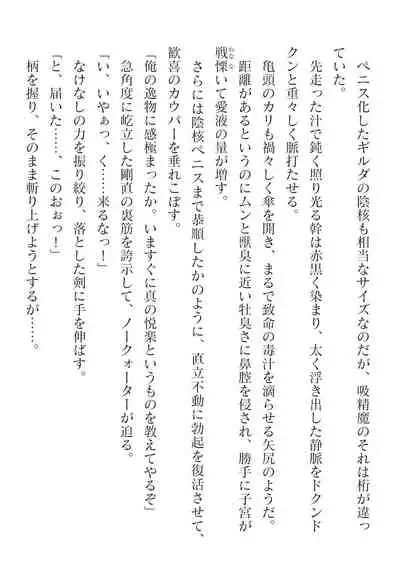 ペニス化したギルダの陰核も相当なサイズなのだが、吸精魔のそれは桁が違っ
ていた。
先走った汁で鈍く照り光る幹は赤黒く染まり、太く浮き出した静脈をドクンド
クンと重々しく脈打たせる。
亀頭のカリも禍々しく傘を開き、まるで致命の毒汁を滴らせる矢尻のようだ。
距離があるというのにムンと獣臭に近い牡臭さに鼻腔を侵され、勝手に子宮が
戦慄いて愛液の量が増す。
わなな
さらには陰核ペニスまで恭順したかのように、直立不動に勃起を復活させて、
歓喜のカウパーを垂れこぼす。
「俺の逸物に感極まったか。いますぐに真の悦楽というものを教えてやるぞ」
急角度に屹立した剛直の裏筋を誇示して、ノークォーターが迫る。
「い、いやぁっ、く……来るなっ！」
なけなしの力を振り絞り、落とした剣に手を伸ばす。
「と、届いた……、このおぉっ！」
柄を握り、そのまま斬り上げようとするが……。